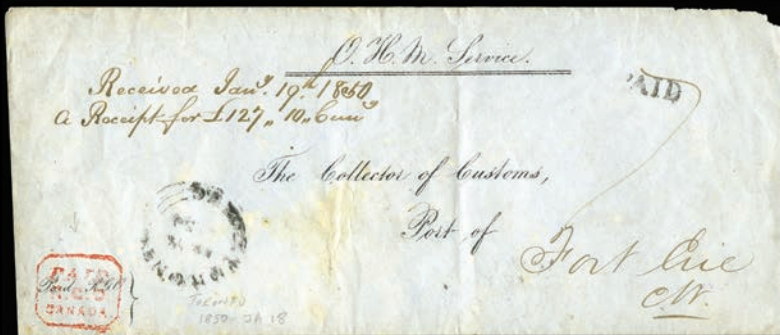 O. H. M. Service.
PAID
Received Jany. 19th 1850
a Receipt for £127,, 10,, Curry
The Collector of Customs,
Port of
Fort Erie
CW.
PAID
CANADA
Paid
TORONTO
1850 JA 18